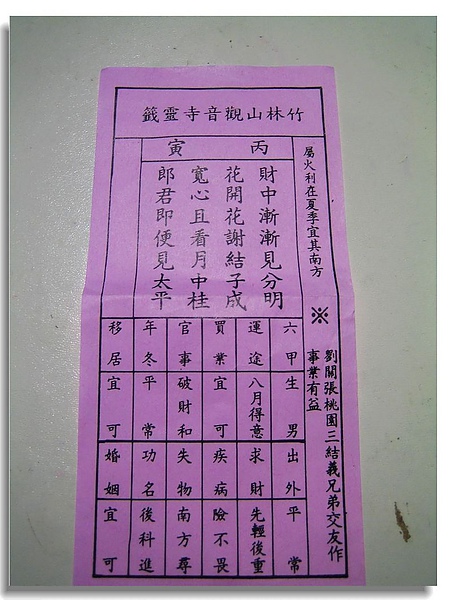 竹林山觀音寺靈籤
屬火利在夏季宜其南方
※
劉關張桃園三結義兄弟交友作
事業有益
丙寅
財中漸漸見分明
花開花謝結子成
寬心且看月中桂
郎君即便見太平
六甲 生男
運途 八月得意
買業 宜可
官事 破財和
年冬 平常
移居 宜可
出外 平常
求財 先輕後重
疾病 險不畏
失物 南方尋
功名 後科進
婚姻 宜可